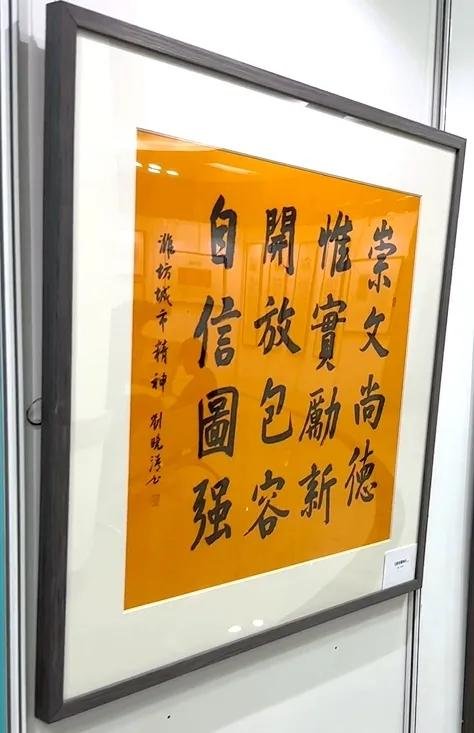 崇文尚德
惟實勵新
開放包容
自信圖强
濰坊城市精神 劉曉